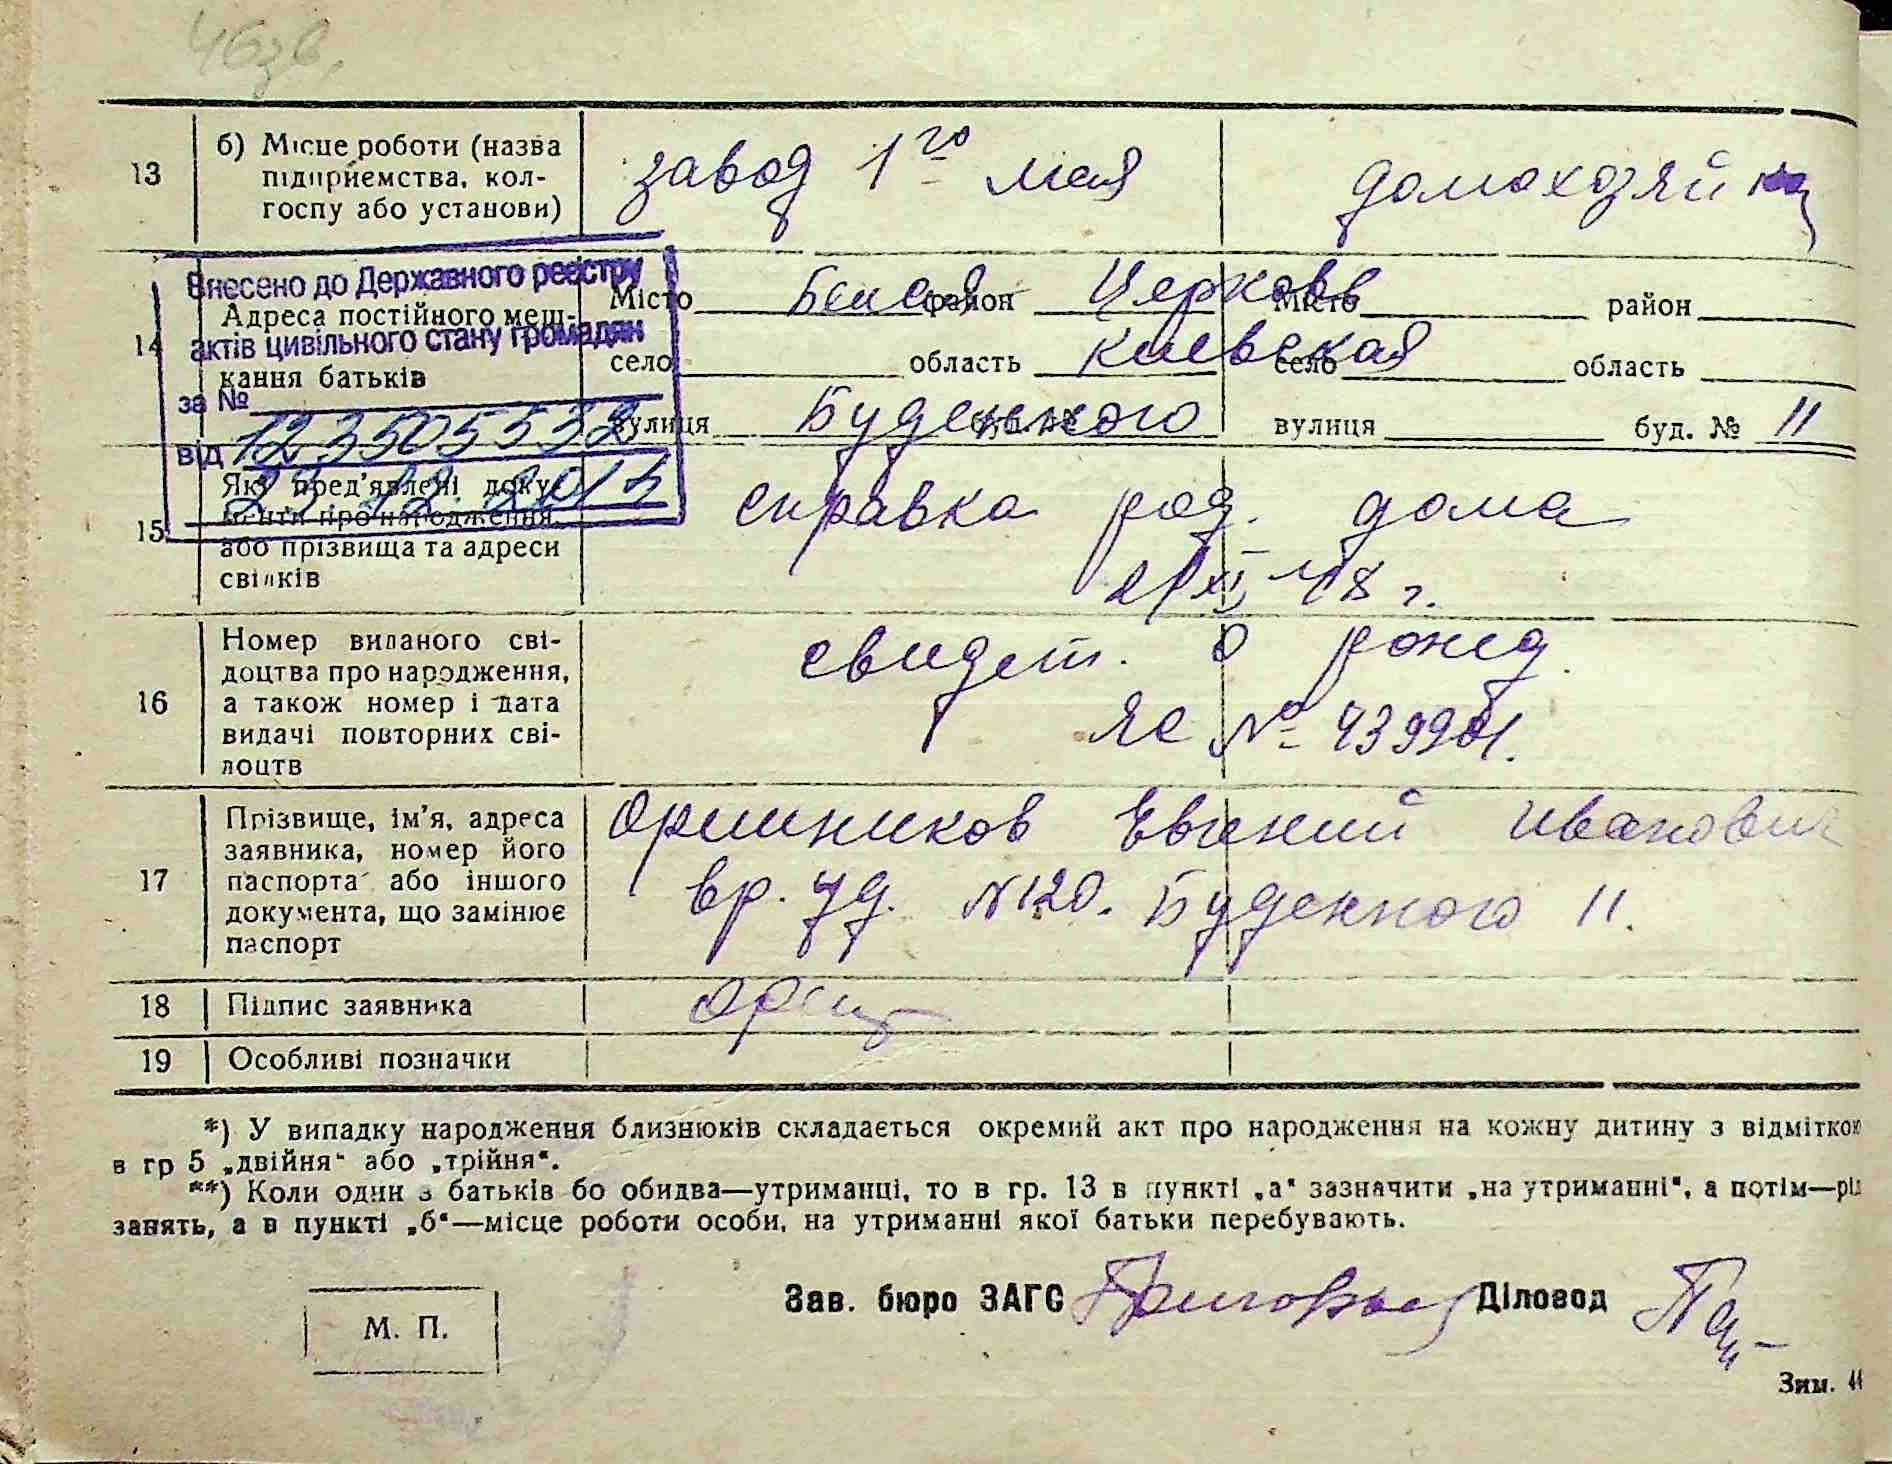 46зв.
13
б) Місце роботи (назва
підприємства, кол-
госпу або установи)
завод 1го мая
домохозяйка
Внесено до Державного реєстру
актів цивільного стану громадян
за №
123505532
від
23 12 2013
14
Адреса постійного меш-
кання батьків
Місто Белая район Церковь
село область Киевская
вулиця Буденного буд. №
Місто район
село область
вулиця буд. № 11
15
Які пред'явлені доку-
менти про народження
або прізвища та адреси
свідків
справка род. дома
XI 48 г.
16
Номер виданого сві-
доцтва про народження,
а також номер і дата
видачі повторних сві-
доцтв
свидет. о рожд.
ЯС № 439901.
17
Прізвище, ім'я, адреса
заявника, номер його
паспорта або іншого
документа, що замінює
паспорт
Оришников Евгений Иванович
вр. уд. №120. Буденного 11.
18
Підпис заявника
19
Особливі позначки
*) У випадку народження близнюків складається окремий акт про народження на кожну дитину з відміткою
в гр 5 „двійня“ або „трійня“.
**) Коли один з батьків бо обидва—утриманці, то в гр. 13 в пункті „а“ зазначити „на утриманні“, а потім—рід
занять, а в пункті „б“—місце роботи особи, на утриманні якої батьки перебувають.
Зав. бюро ЗАГС
Діловод
М. П.
Зим. 44